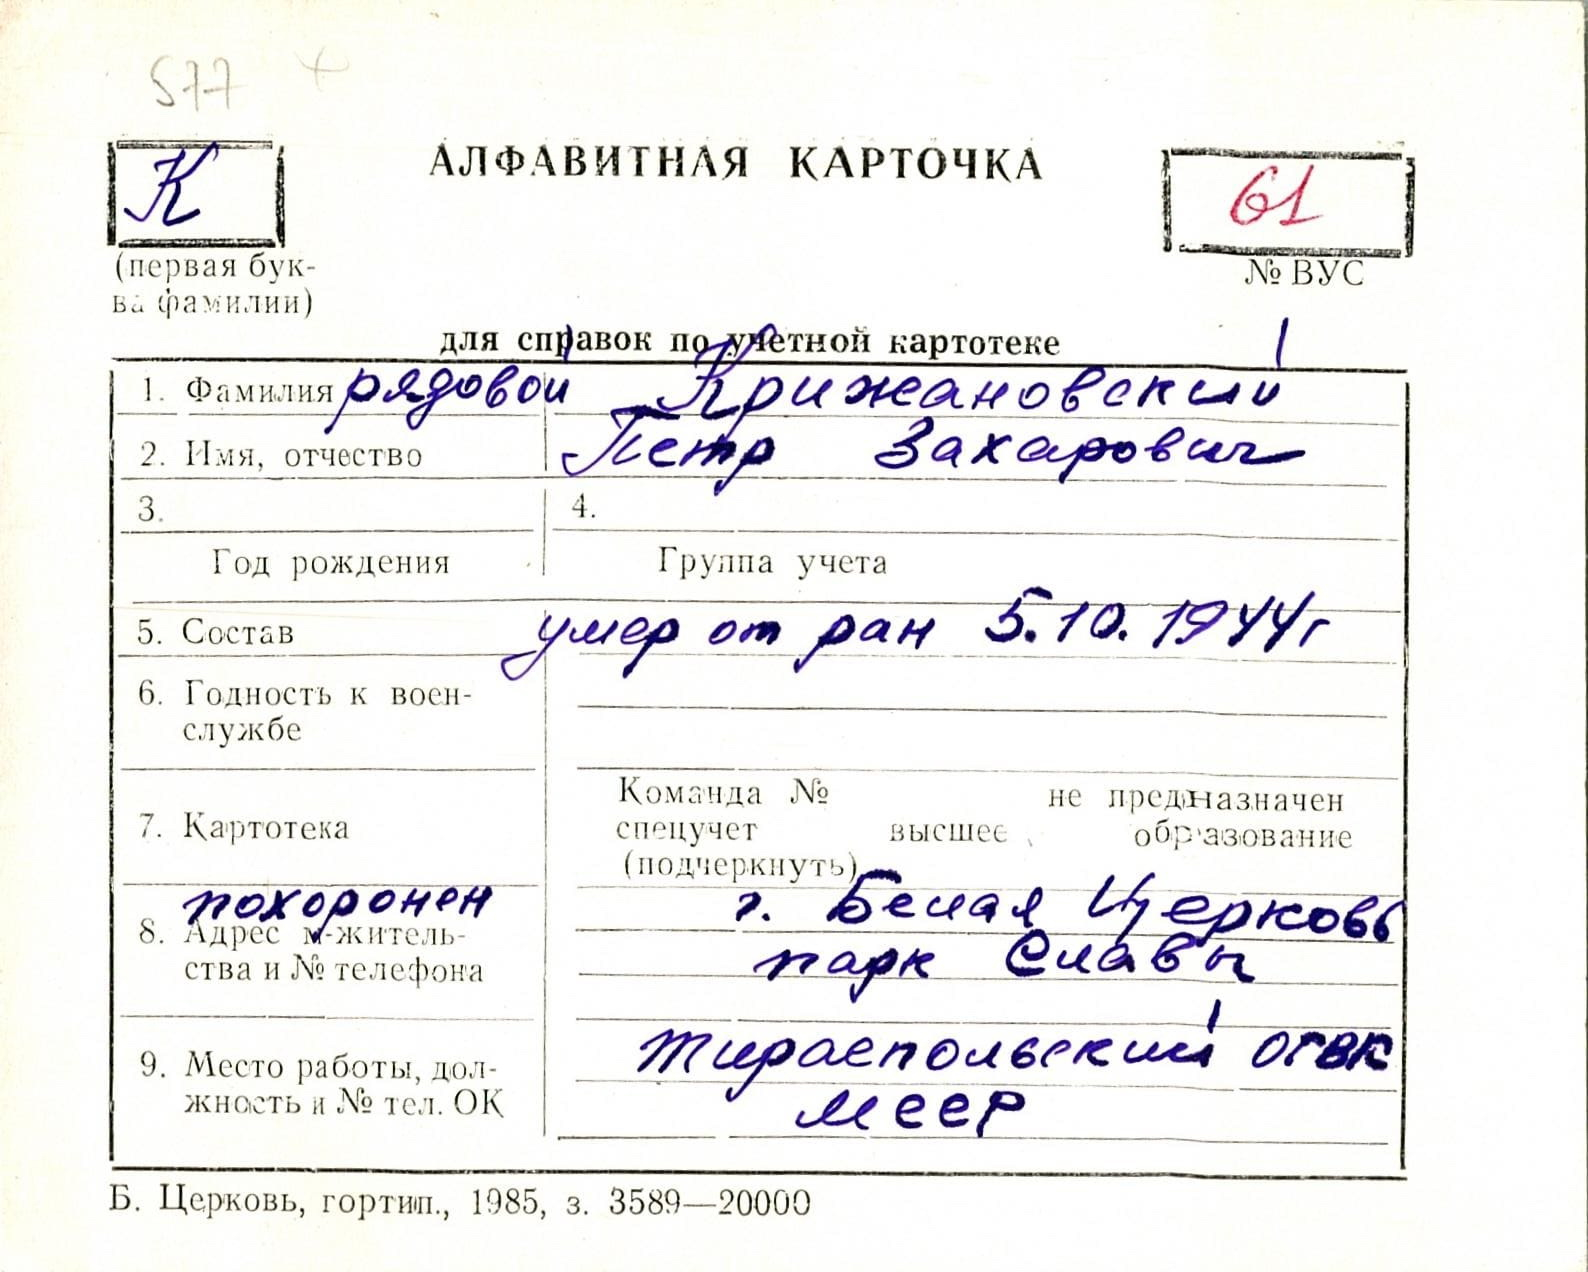 577 +
К
АЛФАВИТНАЯ КАРТОЧКА
61
(первая бук-
ва фамилии)
№ ВУС
для справок по учетной картотеке
1. Фамилия рядовой Крижановский
2. Имя, отчество Петр Захарович
3. 4.
Год рождения Группа учета
5. Состав умер от ран 5.10.1944г
6. Годность к воен-
службе
7. Картотека
Команда № не предназначен
спецучет высшее образование
(подчеркнуть)
похоронен г. Белая Церковь
8. Адрес м-житель-
ства и № телефона
парк Славы
9. Место работы, дол-
жность и № тел. ОК
Тираспольский ОГВК
МССР
Б. Церковь, гортип., 1985, з. 3589—20000